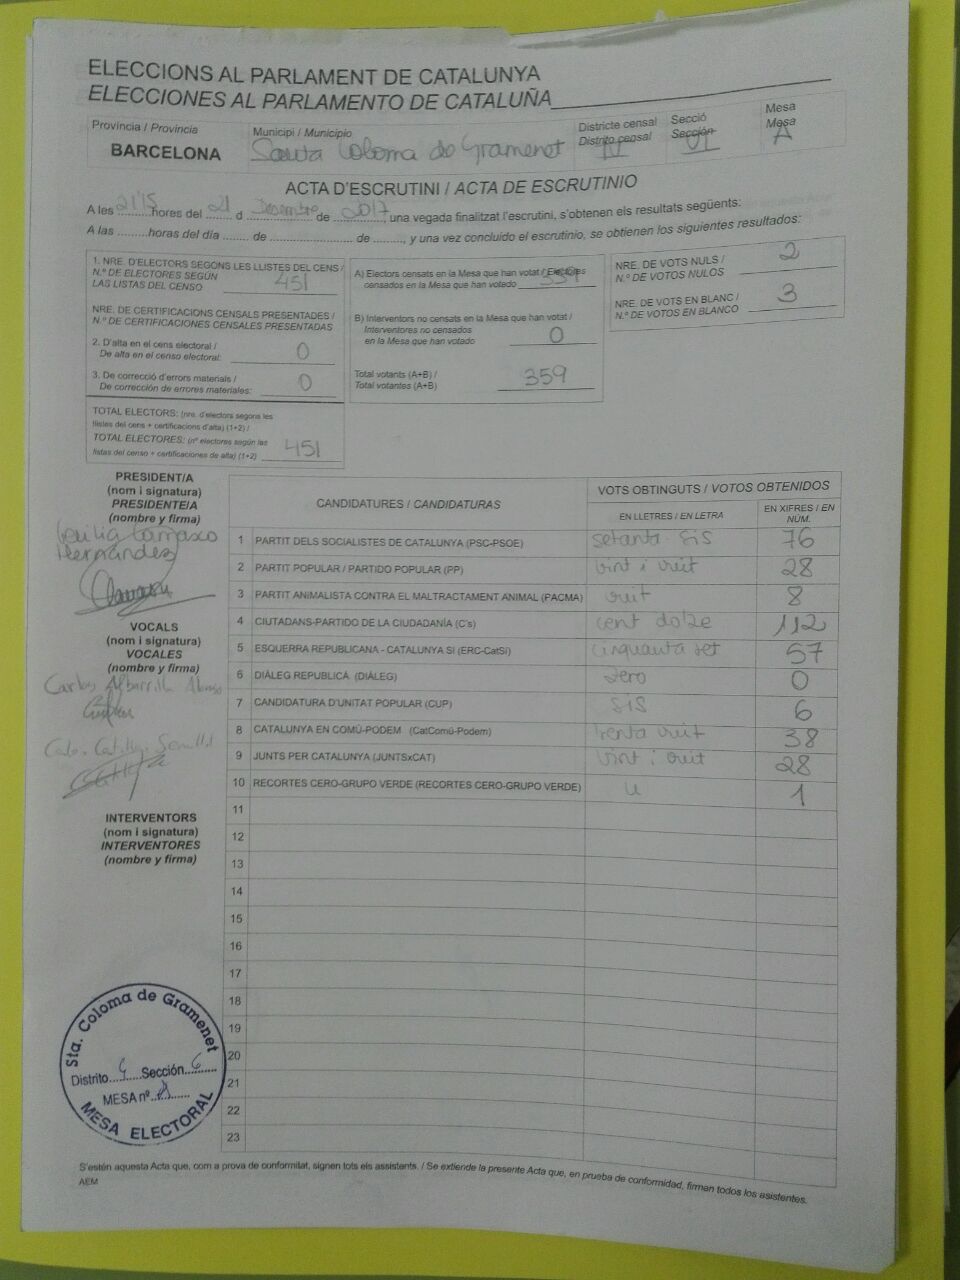 ELECCIONS AL PARLAMENT DE CATALUNYA
ELECCIONES AL PARLAMENTO DE CATALUÑA
Provincia / Provincia
BARCELONA
Municipi / Municipio
Santa Coloma de Gramenet
Districte censal
Distrito censal
IV
Secció
Sección
VI
Mesa
Mesa
A
ACTA D'ESCRUTINI / ACTA DE ESCRUTINIO
A les 21'15 hores del 21 d Desembre de 2017, una vegada finalitzat l'escrutini, s'obtenen els resultats següents:
A las .........horas del día ........ de .......................... de ........., y una vez concluido el escrutinio, se obtienen los siguientes resultados:
1. NRE. D'ELECTORS SEGONS LES LLISTES DEL CENS /
N.º DE ELECTORES SEGÚN
LAS LISTAS DEL CENSO 451
NRE. DE CERTIFICACIONS CENSALS PRESENTADES /
N.º DE CERTIFICACIONES CENSALES PRESENTADAS
2. D'alta en el cens electoral /
De alta en el censo electoral: 0
3. De correcció d'errors materials /
De corrección de errores materiales: 0
TOTAL ELECTORS: (nre. d'electors segons les
llistes del cens + certificacions d'alta) (1+2) /
TOTAL ELECTORES: (nº electores según las
listas del censo + certificaciones de alta) (1+2) 451
A) Electors censats en la Mesa que han votat / Electores
censados en la Mesa que han votado 359
B) Interventors no censats en la Mesa que han votat /
Interventores no censados
en la Mesa que han votado 0
Total votants (A+B) /
Total votantes (A+B) 359
NRE. DE VOTS NULS /
N.º DE VOTOS NULOS 2
NRE. DE VOTS EN BLANC /
N.º DE VOTOS EN BLANCO 3
PRESIDENT/A
(nom i signatura)
PRESIDENTE/A
(nombre y firma)
Carrasco
Hernández
VOCALS
(nom i signatura)
VOCALES
(nombre y firma)
Carlos
INTERVENTORS
(nom i signatura)
INTERVENTORES
(nombre y firma)
CANDIDATURES / CANDIDATURAS
VOTS OBTINGUTS / VOTOS OBTENIDOS
EN LLETRES / EN LETRA
EN XIFRES / EN
NÚM.
1 PARTIT DELS SOCIALISTES DE CATALUNYA (PSC-PSOE) setanta sis 76
2 PARTIT POPULAR / PARTIDO POPULAR (PP) vint i vuit 28
3 PARTIT ANIMALISTA CONTRA EL MALTRACTAMENT ANIMAL (PACMA) vuit 8
4 CIUTADANS-PARTIDO DE LA CIUDADANÍA (C's) cent dotze 112
5 ESQUERRA REPUBLICANA - CATALUNYA SÍ (ERC-CatSí) cinquanta set 57
6 DIÀLEG REPUBLICÀ (DIÀLEG) zero 0
7 CANDIDATURA D'UNITAT POPULAR (CUP) sis 6
8 CATALUNYA EN COMÚ-PODEM (CatComú-Podem) trenta vuit 38
9 JUNTS PER CATALUNYA (JUNTSxCAT) vint i vuit 28
10 RECORTES CERO-GRUPO VERDE (RECORTES CERO-GRUPO VERDE) u 1
11
12
13
14
15
16
17
18
19
20
21
22
23
Sta. Coloma de Gramenet
Distrito 4 Sección 6
MESA nº A
MESA ELECTORAL
S'estén aquesta Acta que, com a prova de conformitat, signen tots els assistents. / Se extiende la presente Acta que, en prueba de conformidad, firman todos los asistentes.
AEM